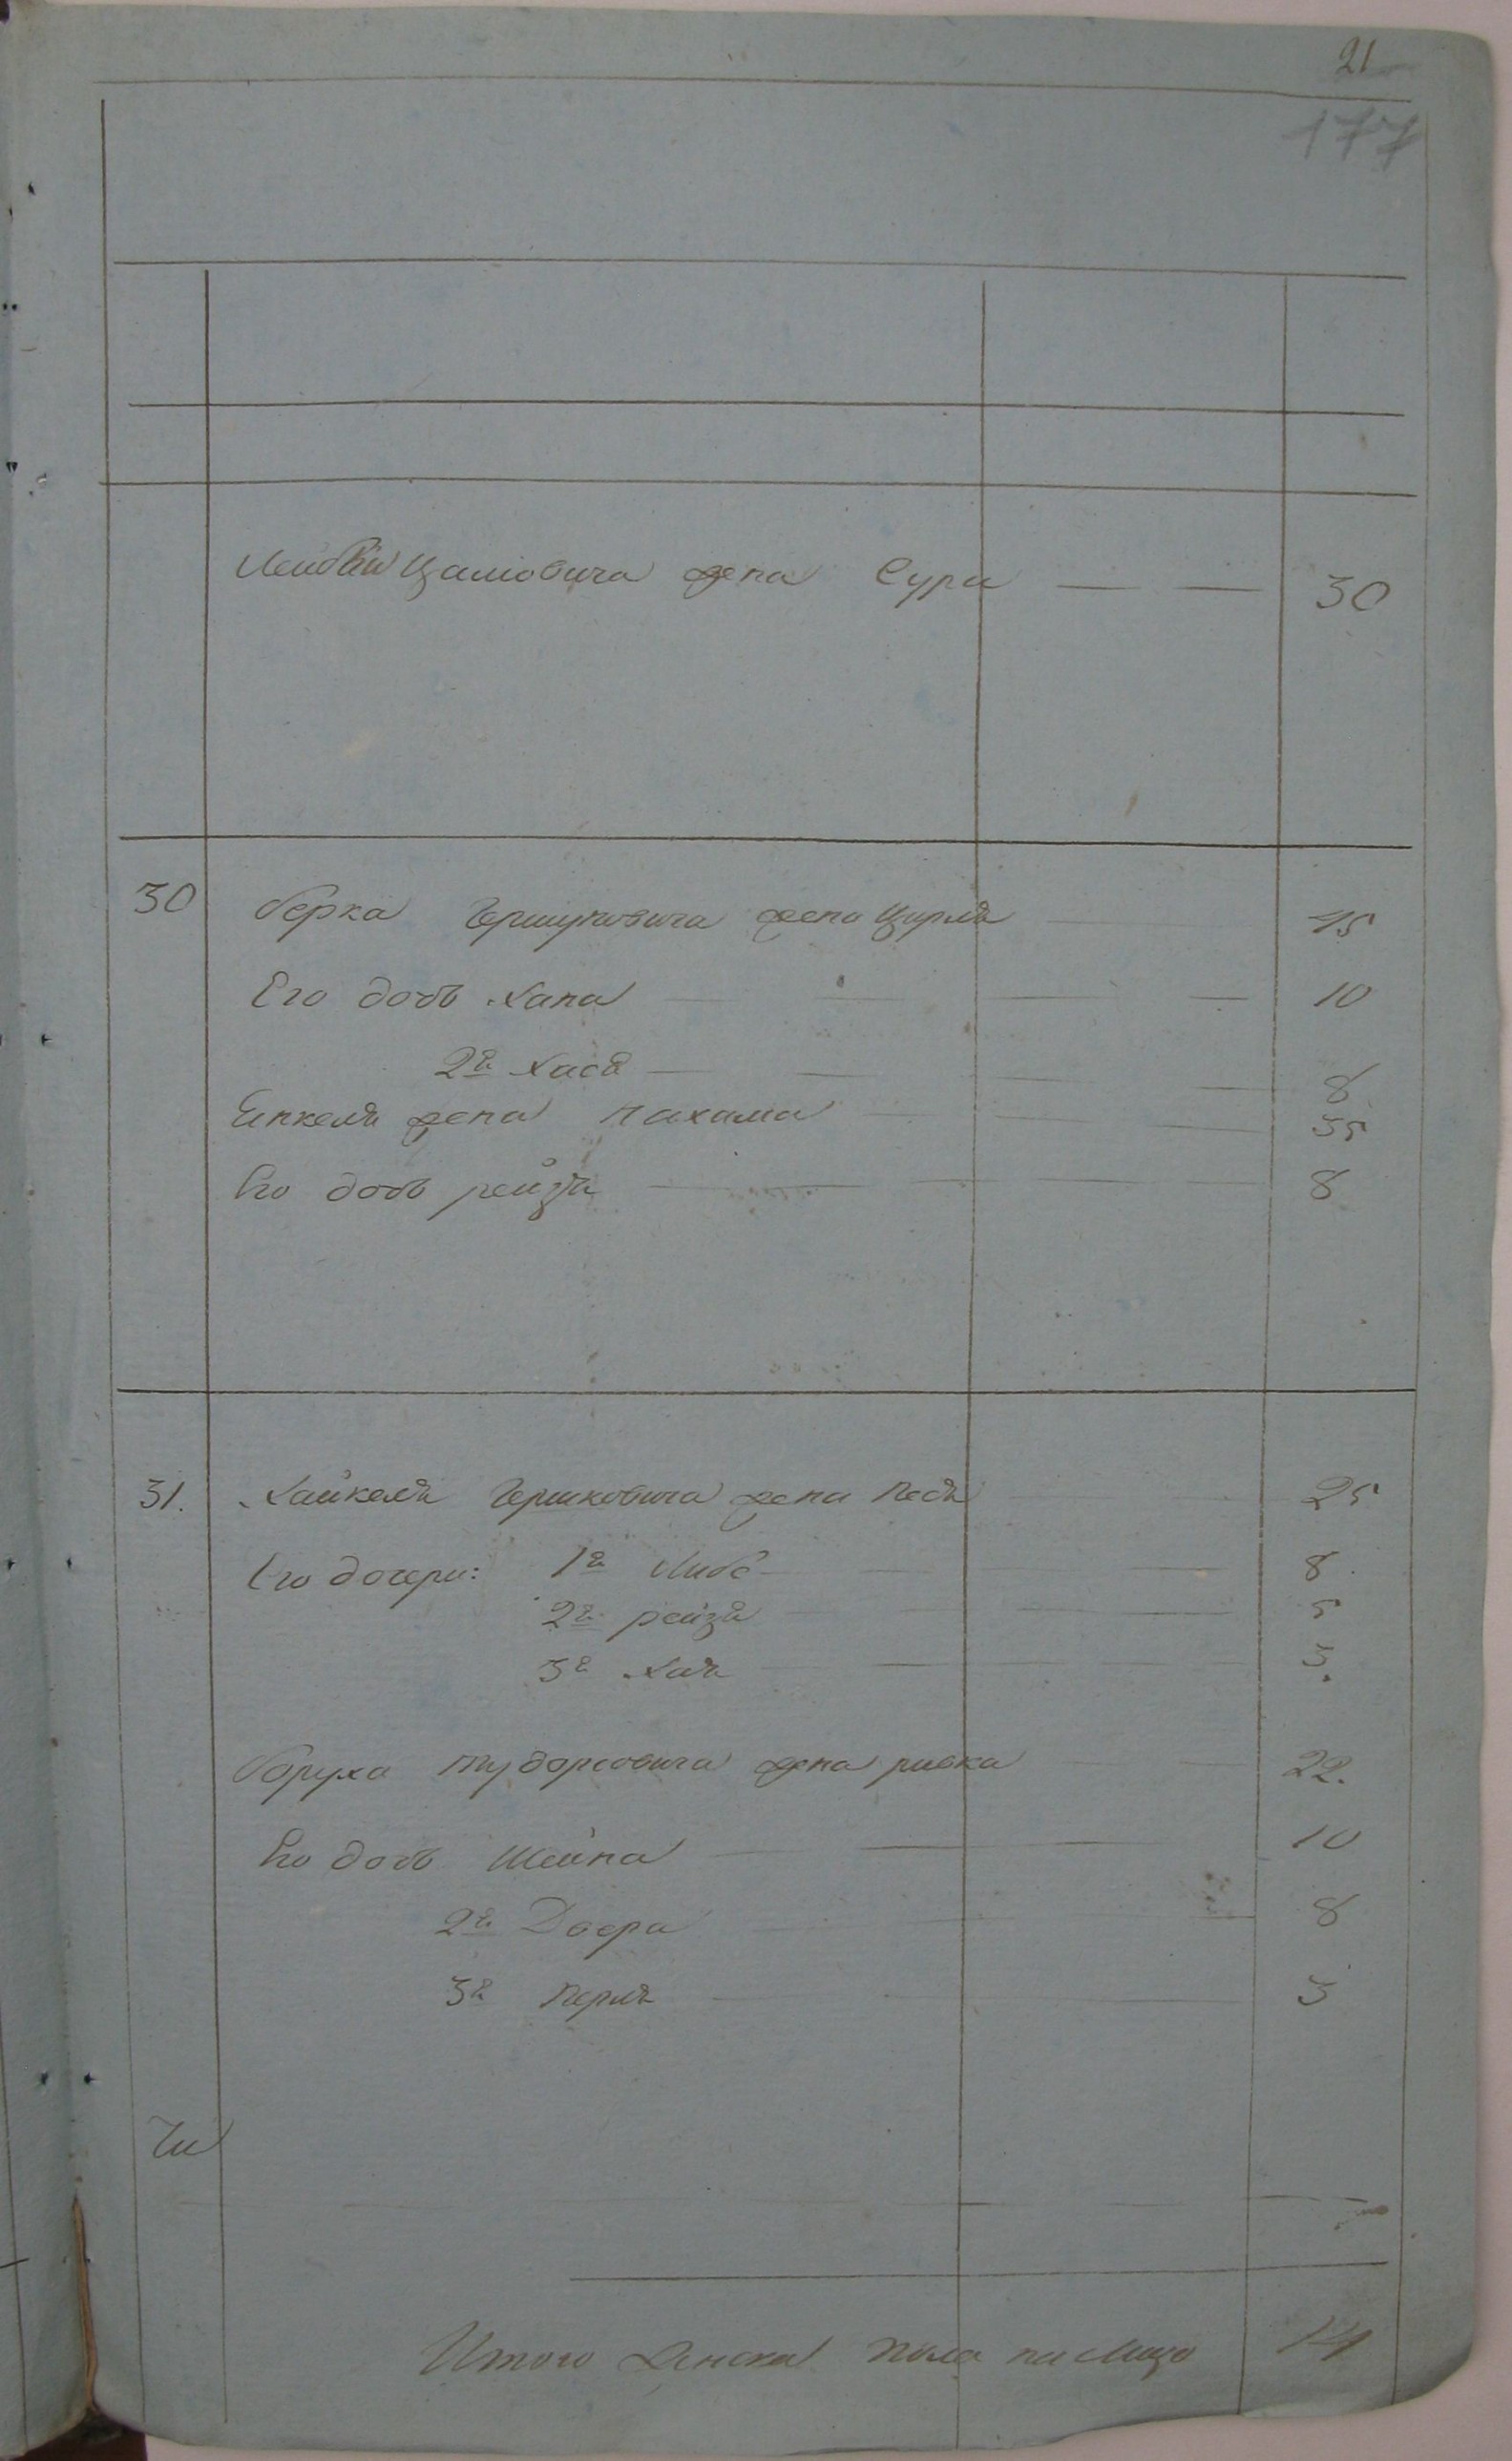 21
177
Лейбы Цалиовича жена Сура 30
30 Берка Гершуновича жена Цирля 45
Его дочь Хана 10
2я Хася 8
Янкеля жена Нахама 35
Его дочь рейзя 8
31. Хайкеля Гершковича жена Песя 25
Его дочери: 1я Либе 8
2я рейзя 5
3я Хая 3.
Боруха Тудоресовича жена ривка 22.
Его дочь Шейна 10
2я Двера 8
3я Перля 3
Итого женска пола на лицо 14